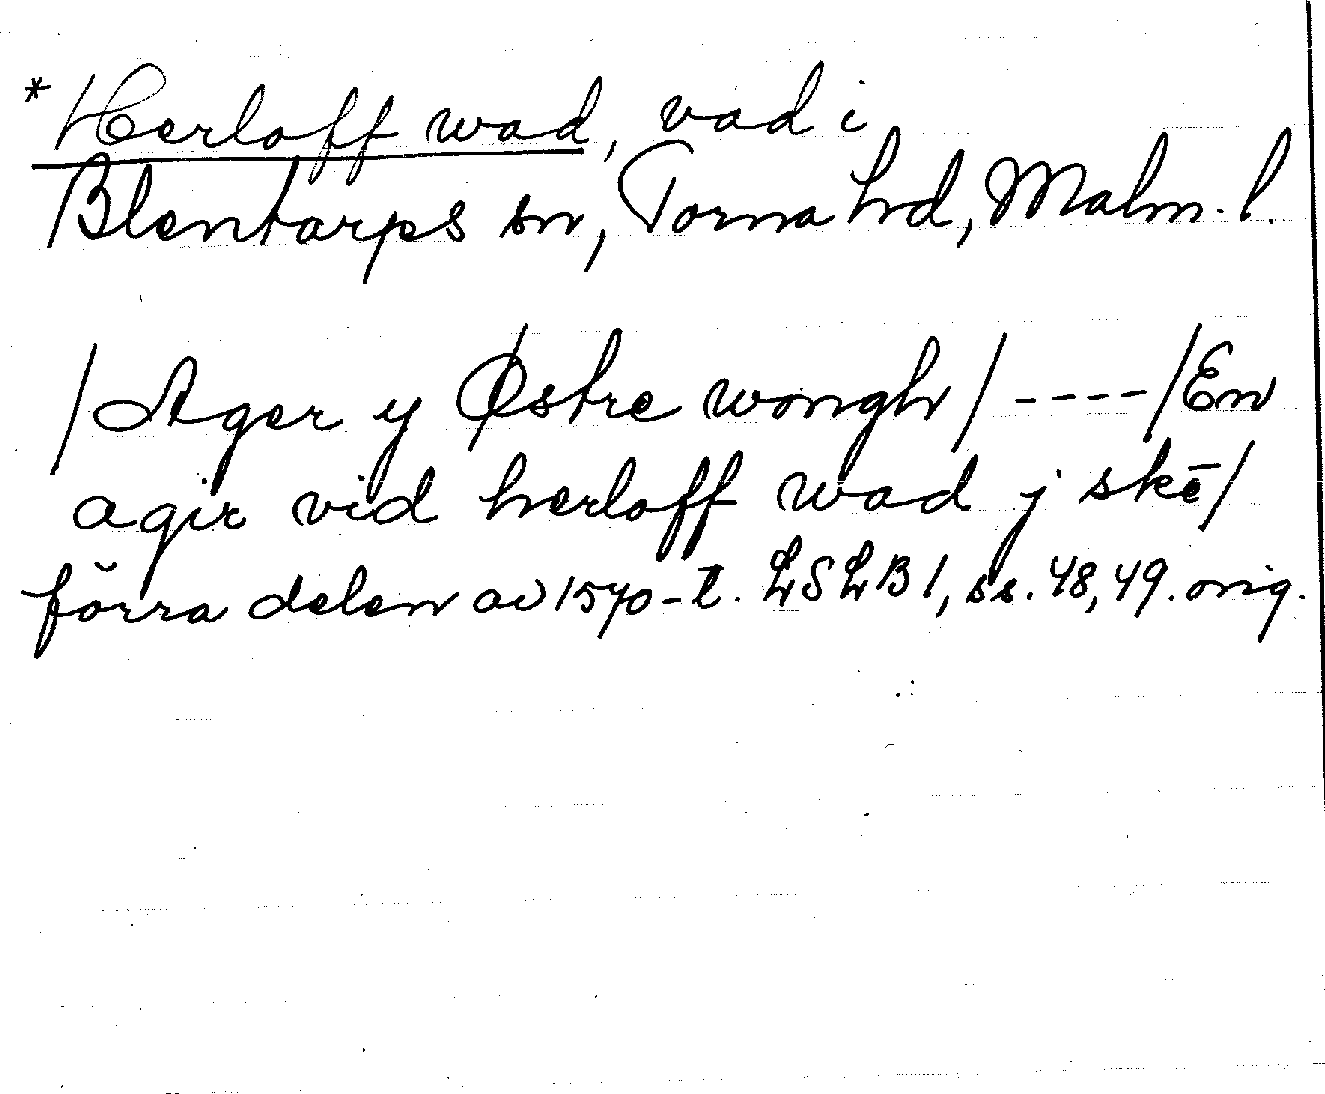 *Herloff wad, vad i
Blentarps sn, Torna hd, Malm. l.
/Ager y Østre wongh/ ----/En
agir vid herloff wad j skē/
förra delen av 1570-t. LSLB 1, ss. 48, 49. orig.